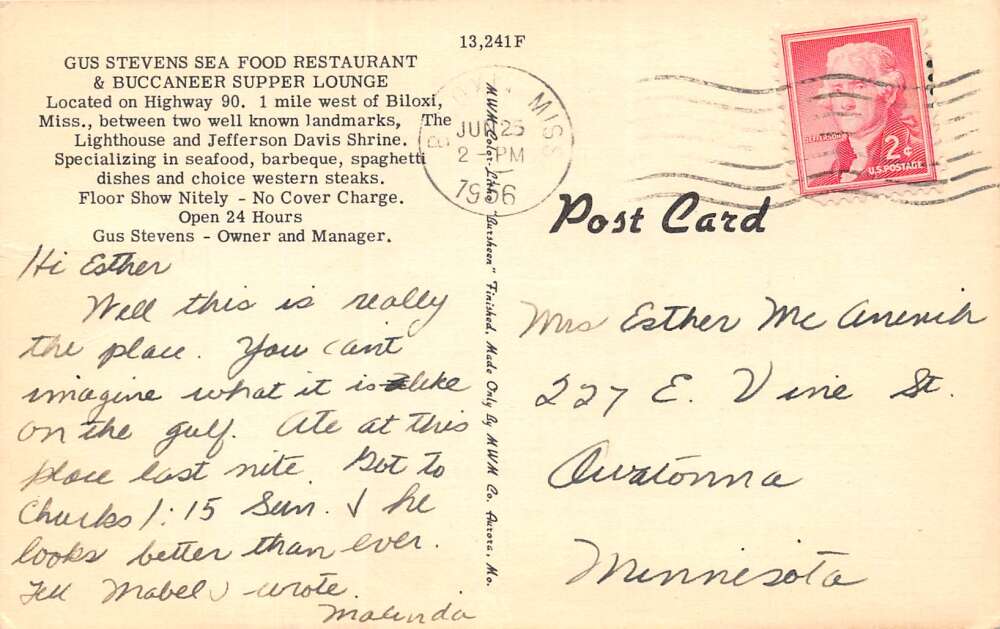 13,241F
GUS STEVENS SEA FOOD RESTAURANT
& BUCCANEER SUPPER LOUNGE
Located on Highway 90. 1 mile west of Biloxi,
Miss., between two well known landmarks, The
Lighthouse and Jefferson Davis Shrine.
Specializing in seafood, barbeque, spaghetti
dishes and choice western steaks.
Floor Show Nitely - No Cover Charge.
Open 24 Hours
Gus Stevens - Owner and Manager.
Hi Esther
Well this is really
the place. You cant
imagine what it is like
on the gulf. Ate at this
place last nite. Got to
Chucks 1:15 Sun. & he
looks better than ever.
Tell Mabel I wrote.
Malinda
MWM Color-Litho "Aursheen" Finished. Made Only By MWM Co. Aurora, Mo.
MISS
JUN 25
2 - PM
1956
2¢
U.S. POSTAGE
Post Card
Mrs Esther
227 E. Vine St.
Owatonna
Minnesota